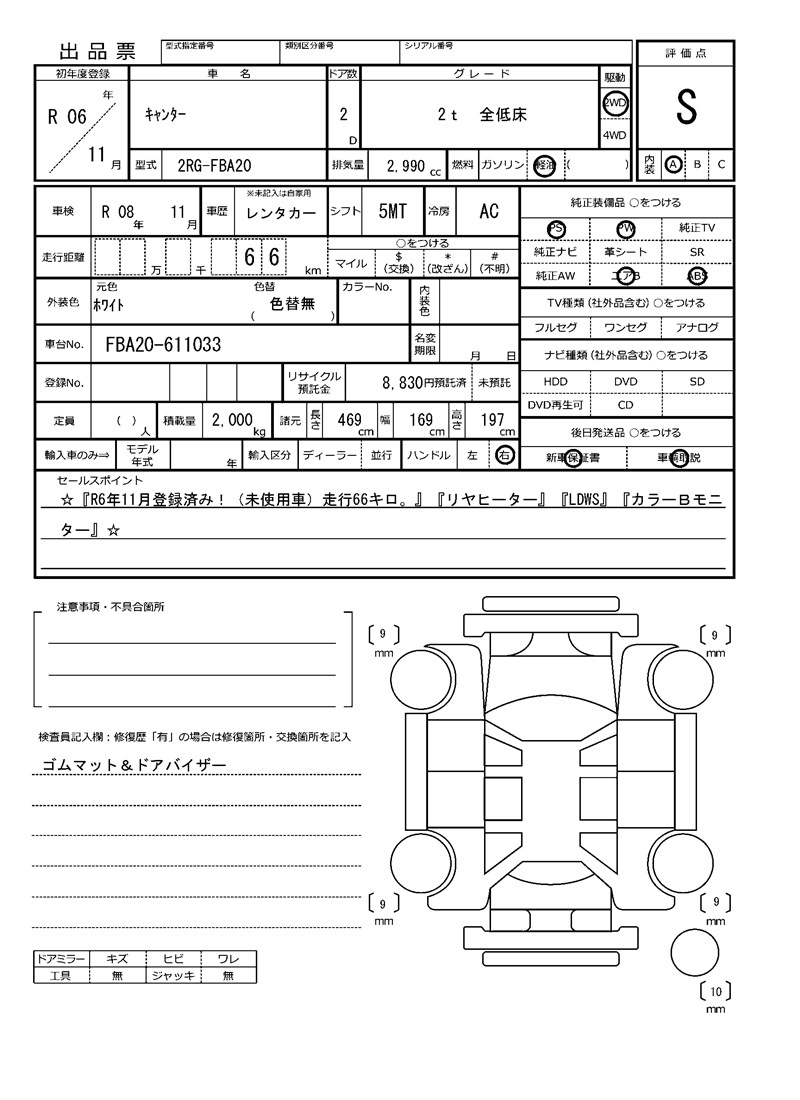 出品票
型式指定番号 類別区分番号 シリアル番号
評価点
S
内装 A B C
初年度登録 車名 ドア数 グレード 駆動
R 06 年 11 月
キャンター
2 D
2t 全低床
2WD
4WD
型式 2RG-FBA20 排気量 2,990 cc 燃料 ガソリン 軽油 ( )
車検 R 08 年 11 月 車歴 ※未記入は自家用 レンタカー シフト 5MT 冷房 AC
走行距離 万 千 6 6 km
○をつける
マイル $(交換) *(改ざん) #(不明)
外装色 元色 ホワイト 色替 ( 色替無 ) カラーNo. 内装色
車台No. FBA20-611033 名変期限 月 日
登録No. リサイクル預託金 8,830円預託済 未預託
定員 ( ) 人 積載量 2,000 kg 諸元 長さ 469 cm 幅 169 cm 高さ 197 cm
輸入車のみ⇒ モデル年式 年 輸入区分 ディーラー 並行 ハンドル 左 右
純正装備品 ○をつける
PS PW 純正TV
純正ナビ 革シート SR
純正AW エアB ABS
TV種類(社外品含む)○をつける
フルセグ ワンセグ アナログ
ナビ種類(社外品含む)○をつける
HDD DVD SD
DVD再生可 CD
後日発送品 ○をつける
新車保証書 車輌取説
セールスポイント
☆『R6年11月登録済み!(未使用車)走行66キロ。』『リヤヒーター』『LDWS』『カラーBモニ
ター』☆
注意事項・不具合箇所
検査員記入欄:修復歴「有」の場合は修復箇所・交換箇所を記入
ゴムマット&ドアバイザー
ドアミラー キズ ヒビ ワレ
工具 無 ジャッキ 無
[ 9 ] mm
[ 9 ] mm
[ 9 ] mm
[ 9 ] mm
[ 10 ] mm